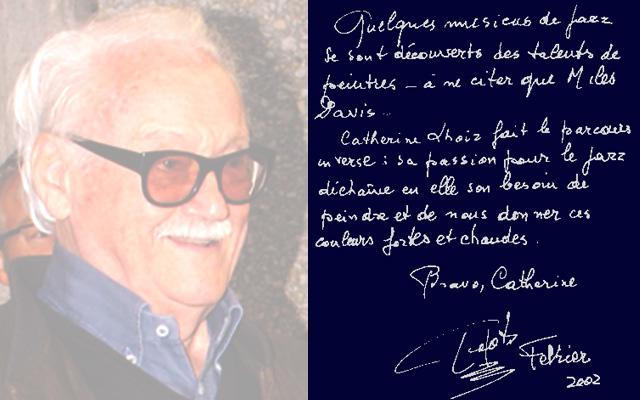 Quelques musiciens de jazz
se sont découverts des talents de
peintres _ à ne citer que Miles
Davis..
Catherine Lhoir fait le parcours
inverse : sa passion pour le jazz
déchaîne en elle son besoin de
peindre et de nous donner ces
couleurs fortes et chaudes.
Bravo, Catherine
Février
2002